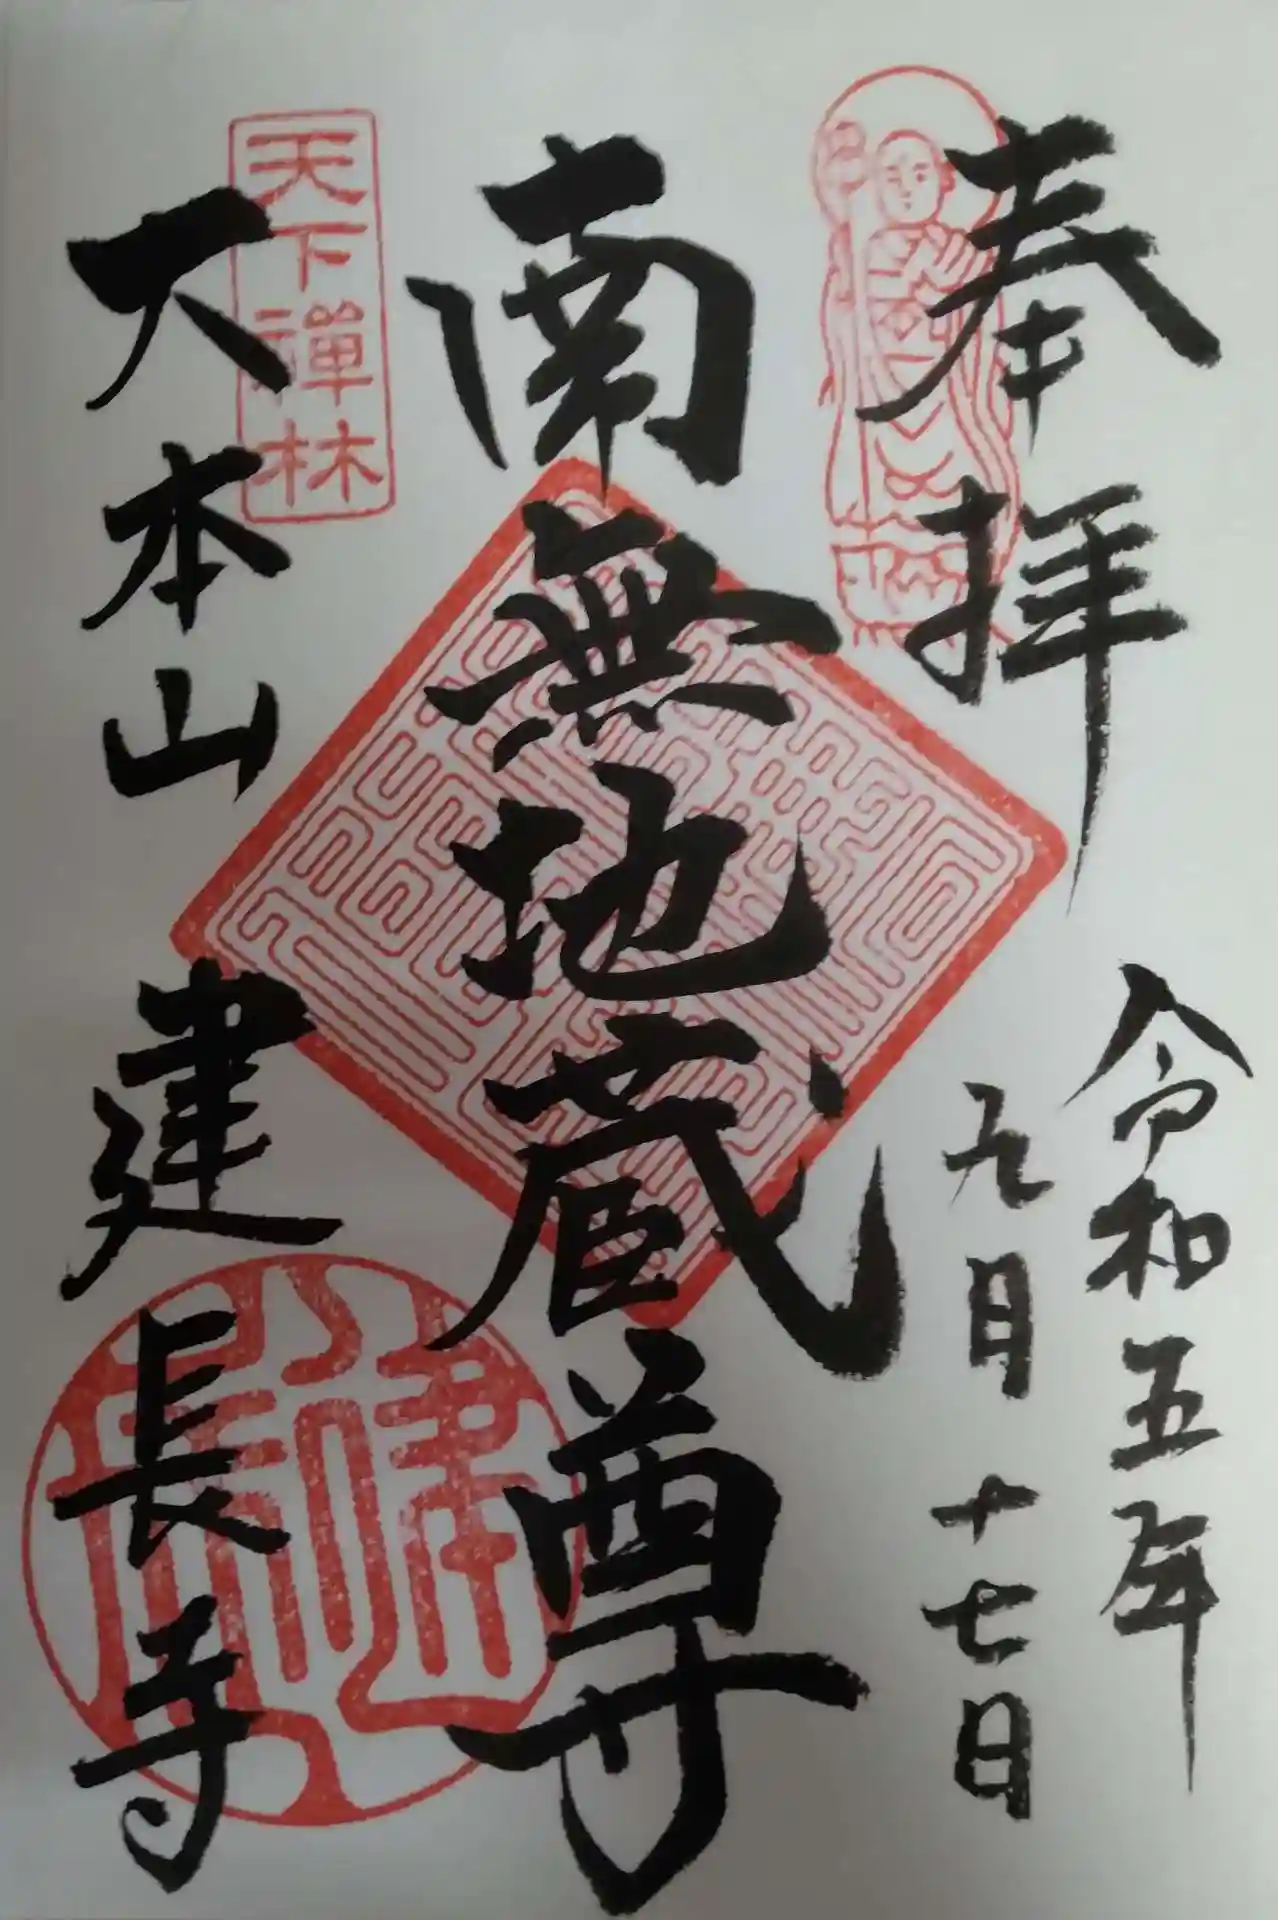 奉拝
令和五年
九月十七日
南無地蔵尊
天下禅林
大本山 建長寺